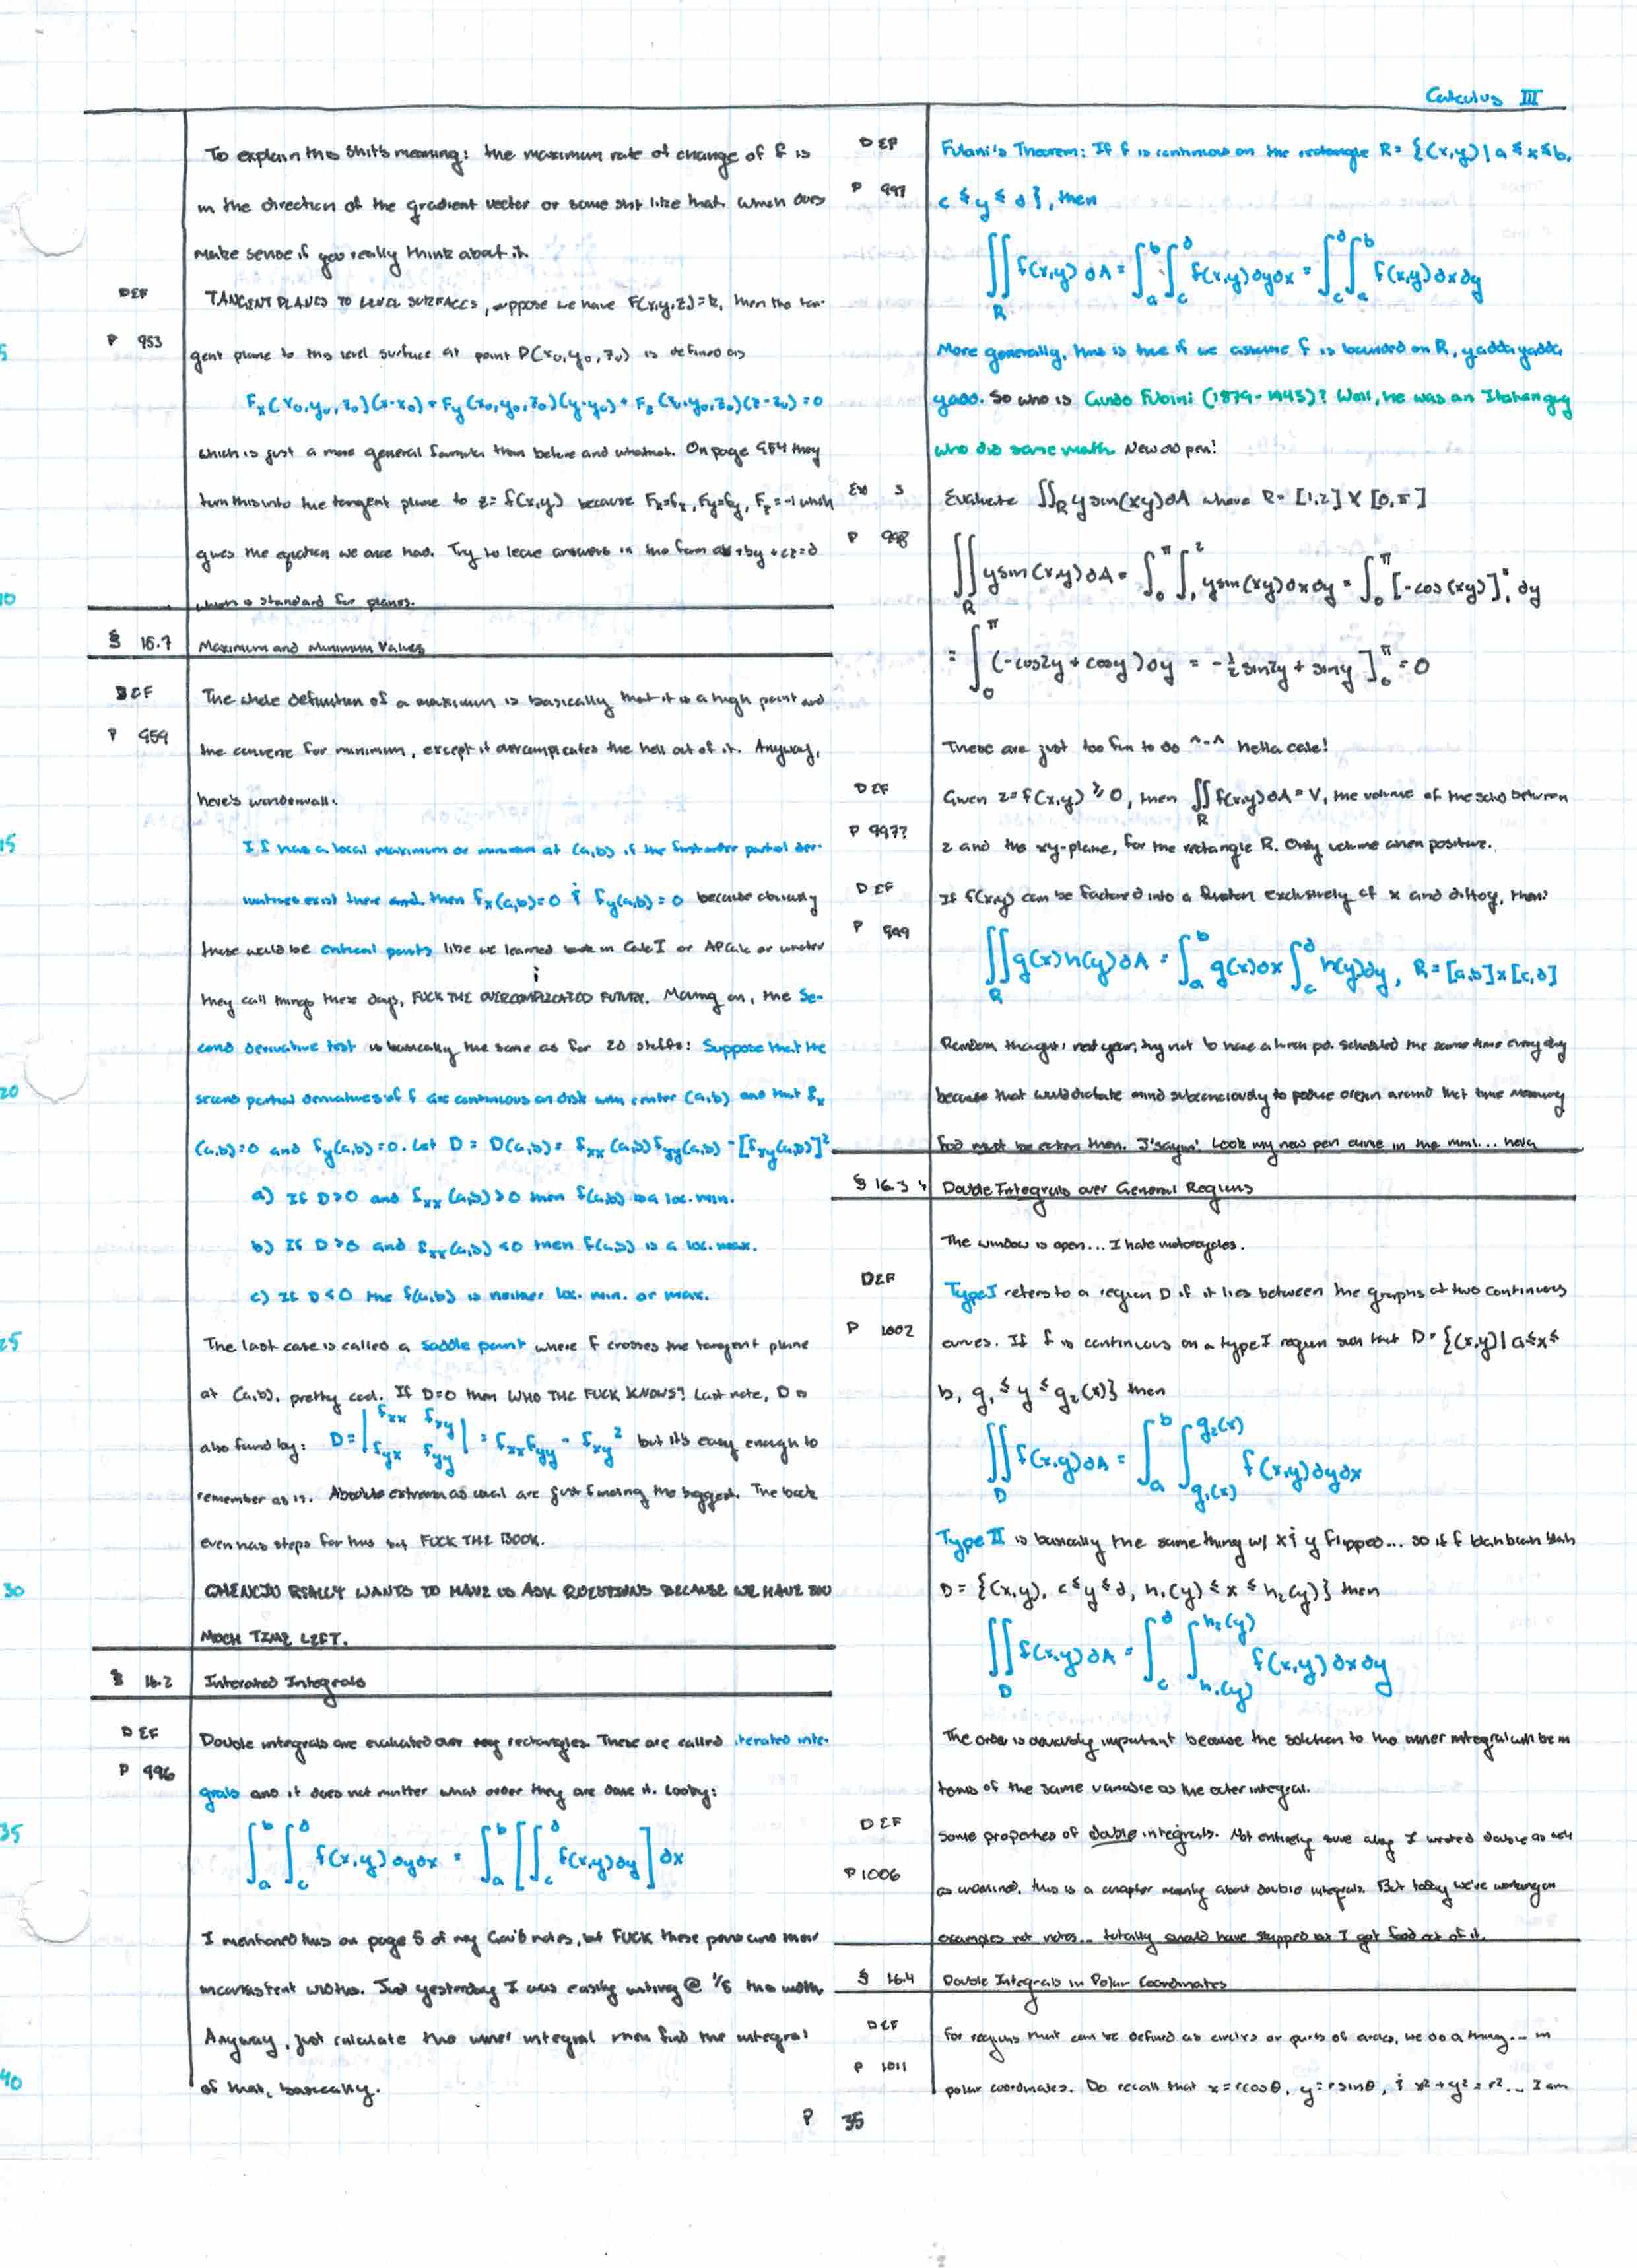 Calculus III
To explain this shit's meaning: the maximum rate of change of f is
in the direction of the gradient vector or some shit like that. Which does
make sense if you really think about it.
DEF
P 953
TANGENT PLANES TO LEVEL SURFACES, suppose we have F(x,y,z)=k, then the tan-
gent plane to this level surface at point P(x₀,y₀,z₀) is defined as
Fx(x₀,y₀,z₀)(x-x₀)+Fy(x₀,y₀,z₀)(y-y₀)+Fz(x₀,y₀,z₀)(z-z₀)=0
which is just a more general formula than before and whatnot. On page 954 they
turn this into the tangent plane to z=f(x,y) because Fx=fx, Fy=fy, Fz=-1 which
gives the equation we once had. Try to leave answers in the form ax+by+cz=d
which is standard for planes.
§ 15.7 Maximum and Minimum Values
DEF
P 959
The whole definition of a maximum is basically that it is a high point and
the converse for minimum, except it overcomplicates the hell out of it. Anyway,
here's wonderwall:
If f has a local maximum or minimum at (a,b) if the first order partial der-
ivatives exist there and then fx(a,b)=0 & fy(a,b)=0 because obviously
these would be critical points like we learned back in Calc I or AP Calc or whatev
they call things these days, FUCK THE OVERCOMPLICATED FUTURE. Moving on, the Se-
cond derivative test is basically the same as for 2D stuffs: Suppose that the
second partial derivatives of f are continuous on disk with center (a,b) and that fx
(a,b)=0 and fy(a,b)=0. Let D = D(a,b) = fxx(a,b)fyy(a,b) - [fxy(a,b)]²
a) If D>0 and fxx(a,b)>0 then f(a,b) is a loc. min.
b) If D>0 and fxx(a,b)<0 then f(a,b) is a loc. max.
c) If D<0 the f(a,b) is neither loc. min. or max.
The last case is called a saddle point where f crosses the tangent plane
at (a,b), pretty cool. If D=0 then WHO THE FUCK KNOWS? Last note, D is
also found by: D = |fxx fxy fyx fyy| = fxxfyy - fxy² but it's easy enough to
remember as is. Absolute extrema as usual are just finding the biggest. The book
even has steps for this but FUCK THE BOOK.
REALLY WANTS TO HAVE US ASK QUESTIONS BECAUSE WE HAVE TOO
MUCH TIME LEFT.
§ 16.2 Interated Integrals
DEF
P 996
Double integrals are evaluated over rectangles. These are called iterated inte-
grals and it does not matter what order they are done it. Looky:
∫ₐᵇ∫꜀ᵈ f(x,y)dydx = ∫ₐᵇ[∫꜀ᵈ f(x,y)dy]dx
I mentioned this on page 5 of my notes, but FUCK these pens and their
inconsistent widths. Just yesterday I was easily writing @ 1/5 the width.
Anyway, just calculate the inner integral then find the integral
of that, basically.
DEF
P 997
Fubini's Theorem: If f is continuous on the rectangle R= {(x,y)|a≤x≤b,
c≤y≤d}, then
∬R f(x,y)dA = ∫ₐᵇ∫꜀ᵈ f(x,y)dydx = ∫꜀ᵈ∫ₐᵇ f(x,y)dxdy
More generally, this is true if we assume f is bounded on R, yadda yadda
yada. So who is Guido Fubini (1879-1943)? Well, he was an Italian guy
who did some math. New old pen!
Ex 3
P 998
Evaluate ∬R y sin(xy)dA where R= [1,2] X [0,π]
∬R ysin(xy)dA = ∫₀^π∫₁² ysin(xy)dxdy = ∫₀^π [-cos(xy)]₁² dy
= ∫₀^π (-cos2y + cosy)dy = -½sin2y + siny]₀^π = 0
These are just too fun to do ^-^ Hella calc!
DEF
P 997?
Given z=f(x,y)≥0, then ∬R f(x,y)dA=V, the volume of the solid between
z and the xy-plane, for the rectangle R. Only volume when positive.
DEF
P 999
If f(x,y) can be factored into a function exclusively of x and ditto y, then:
∬R g(x)h(y)dA = ∫ₐᵇ g(x)dx ∫꜀ᵈ h(y)dy, R=[a,b]x[c,d]
Random thought: next year, try not to have a lunch pd. scheduled the same time every day
because that would dictate mind subconsciously to around that time meaning
food must be eaten then. J'sayin'. Look my new pen came in the mail... hella
§ 16.3 Double Integrals over General Regions
The window is open... I hate motorcycles.
DEF
P 1002
Type I refers to a region D if it lies between the graphs of two continuous
curves. If f is continuous on a type I region such that D= {(x,y)|a≤x≤
b, g₁≤y≤g₂(x)} then
∬D f(x,y)dA = ∫ₐᵇ∫g₁(x)^g₂(x) f(x,y)dydx
Type II is basically the same thing w/ x & y flipped... so if f blah blah blah
D = {(x,y), c≤y≤d, h₁(y)≤x≤h₂(y)} then
∬D f(x,y)dA = ∫꜀ᵈ∫h₁(y)^h₂(y) f(x,y)dxdy
The order is obviously important because the solution to the inner integral will be in
terms of the same variable as the outer integral.
DEF
P 1006
Some properties of double integrals. Not entirely sure why I wroted double as
as underlined, this is a chapter mainly about double integrals. But today we've working on
examples not notes... totally should have skipped but I got food out of it.
§ 16.4 Double Integrals in Polar Coordinates
DEF
P 1011
For regions that can be defined as circles or parts of circles, we do a thing... in
polar coordinates. Do recall that x=rcosθ, y=rsinθ, & x²+y²=r²... I am
5
10
15
20
25
30
35
40
P 35